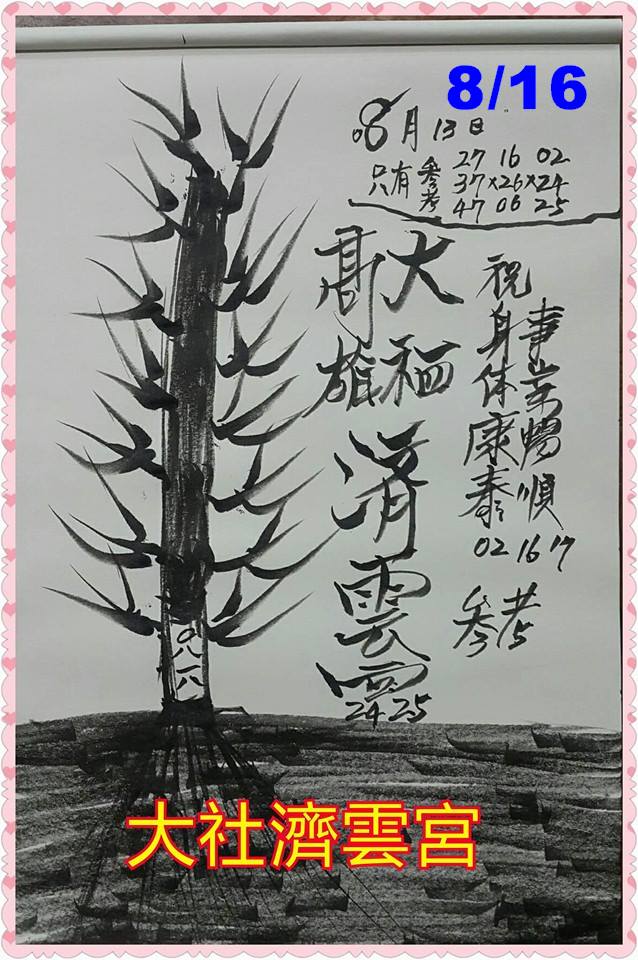 8/16
08月13日
27 16 02
只有參考 37×26×24
47 06 25
祝身体康泰
事業暢順
02 16 17
參考
大福
高雄
濟雲宮
24 25
大社濟雲宮